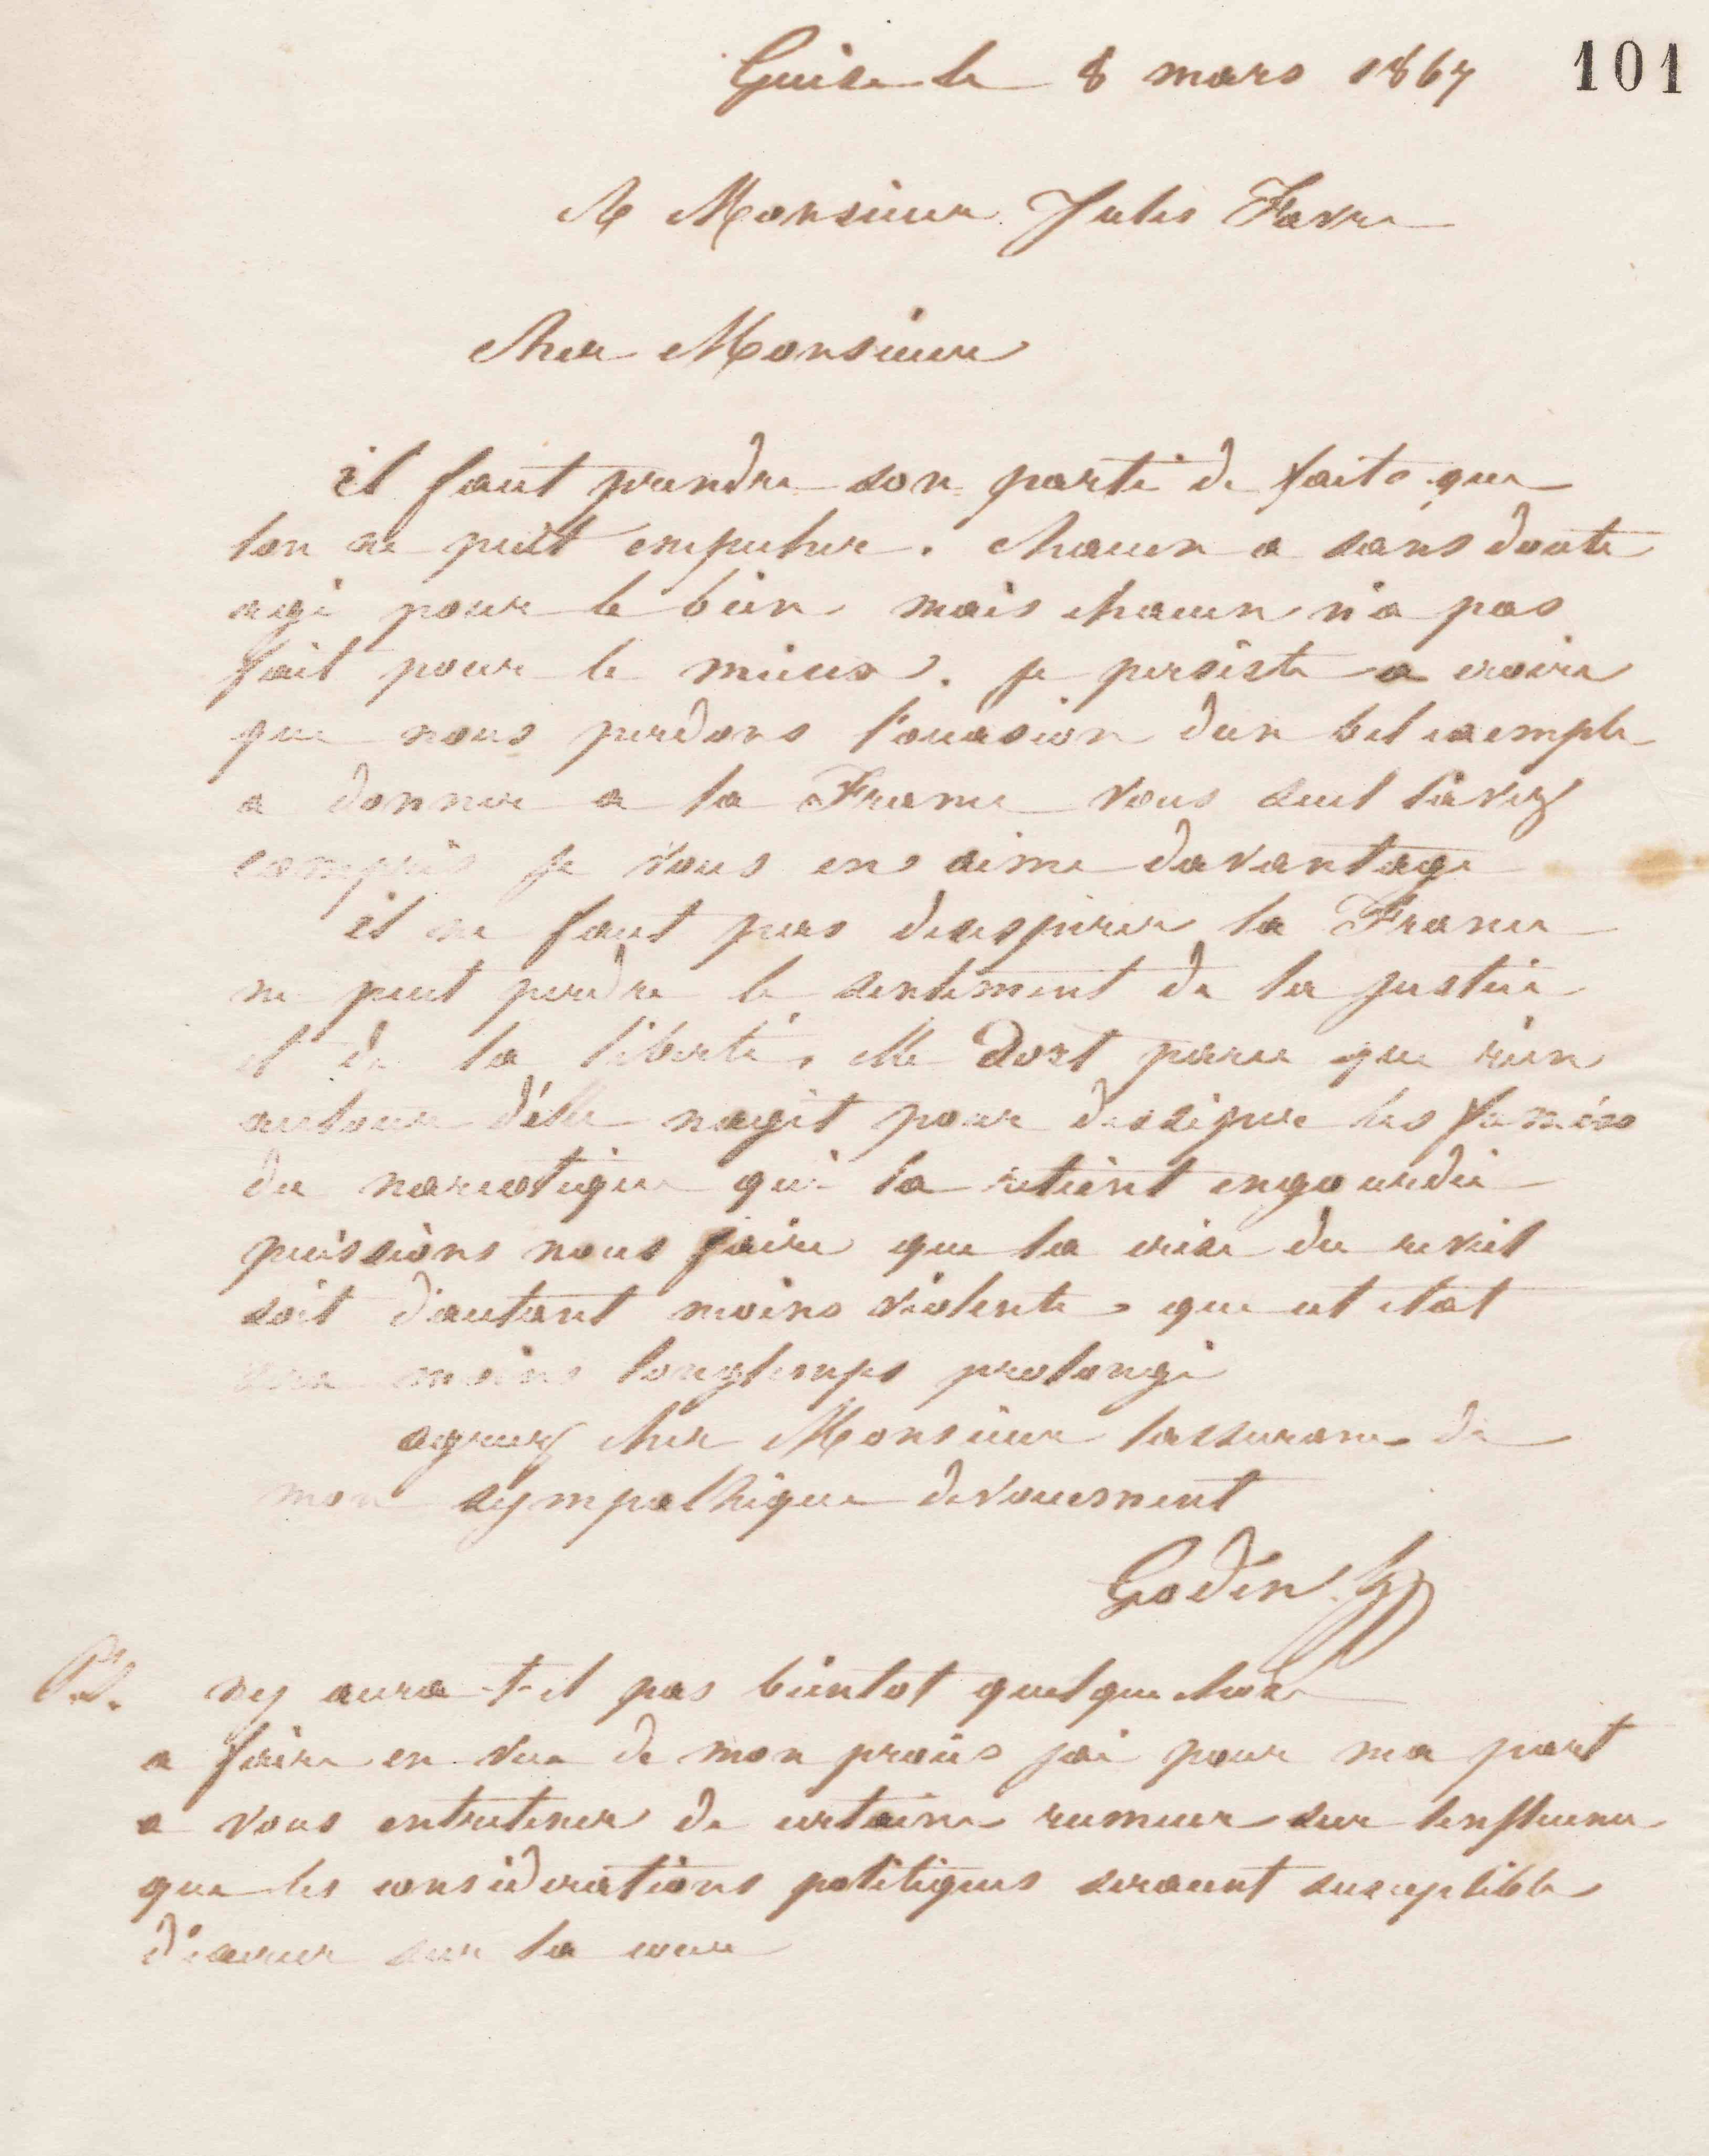 Guise le 8 mars 1867 101
A Monsieur Jules Favre
Cher Monsieur
il faut prendre son parti de faits que
lon ne peut empecher. chacun a sans doute
agi pour le bien mais chacun n'a pas
fait pour le mieux. je persiste a croire
que nous perdons l'occasion dun bel exemple
a donner a la France vous seul l'avez
compris je vous en aime davantage
il ne faut pas desesperer la France
ne peut perdre le sentiment de la justice
et de la liberté, elle dort parce que rien
autour d'elle nagit pour dissiper les fumées
du narcotique qui la retient engourdie
puissions nous faire que la crise du reveil
soit d'autant moins violente que cet etat
sera moins longtemps prolongé
agreez cher Monsieur lassurance de
mon sympathique devouement
Godin
P.S. ny aura-t-il pas bientot quelque chose
a faire en vue de mon procès jai pour ma part
a vous entretenir de certaine rumeur sur linfluence
que les considerations politiques seraient susceptible
d'exercer sur la cour